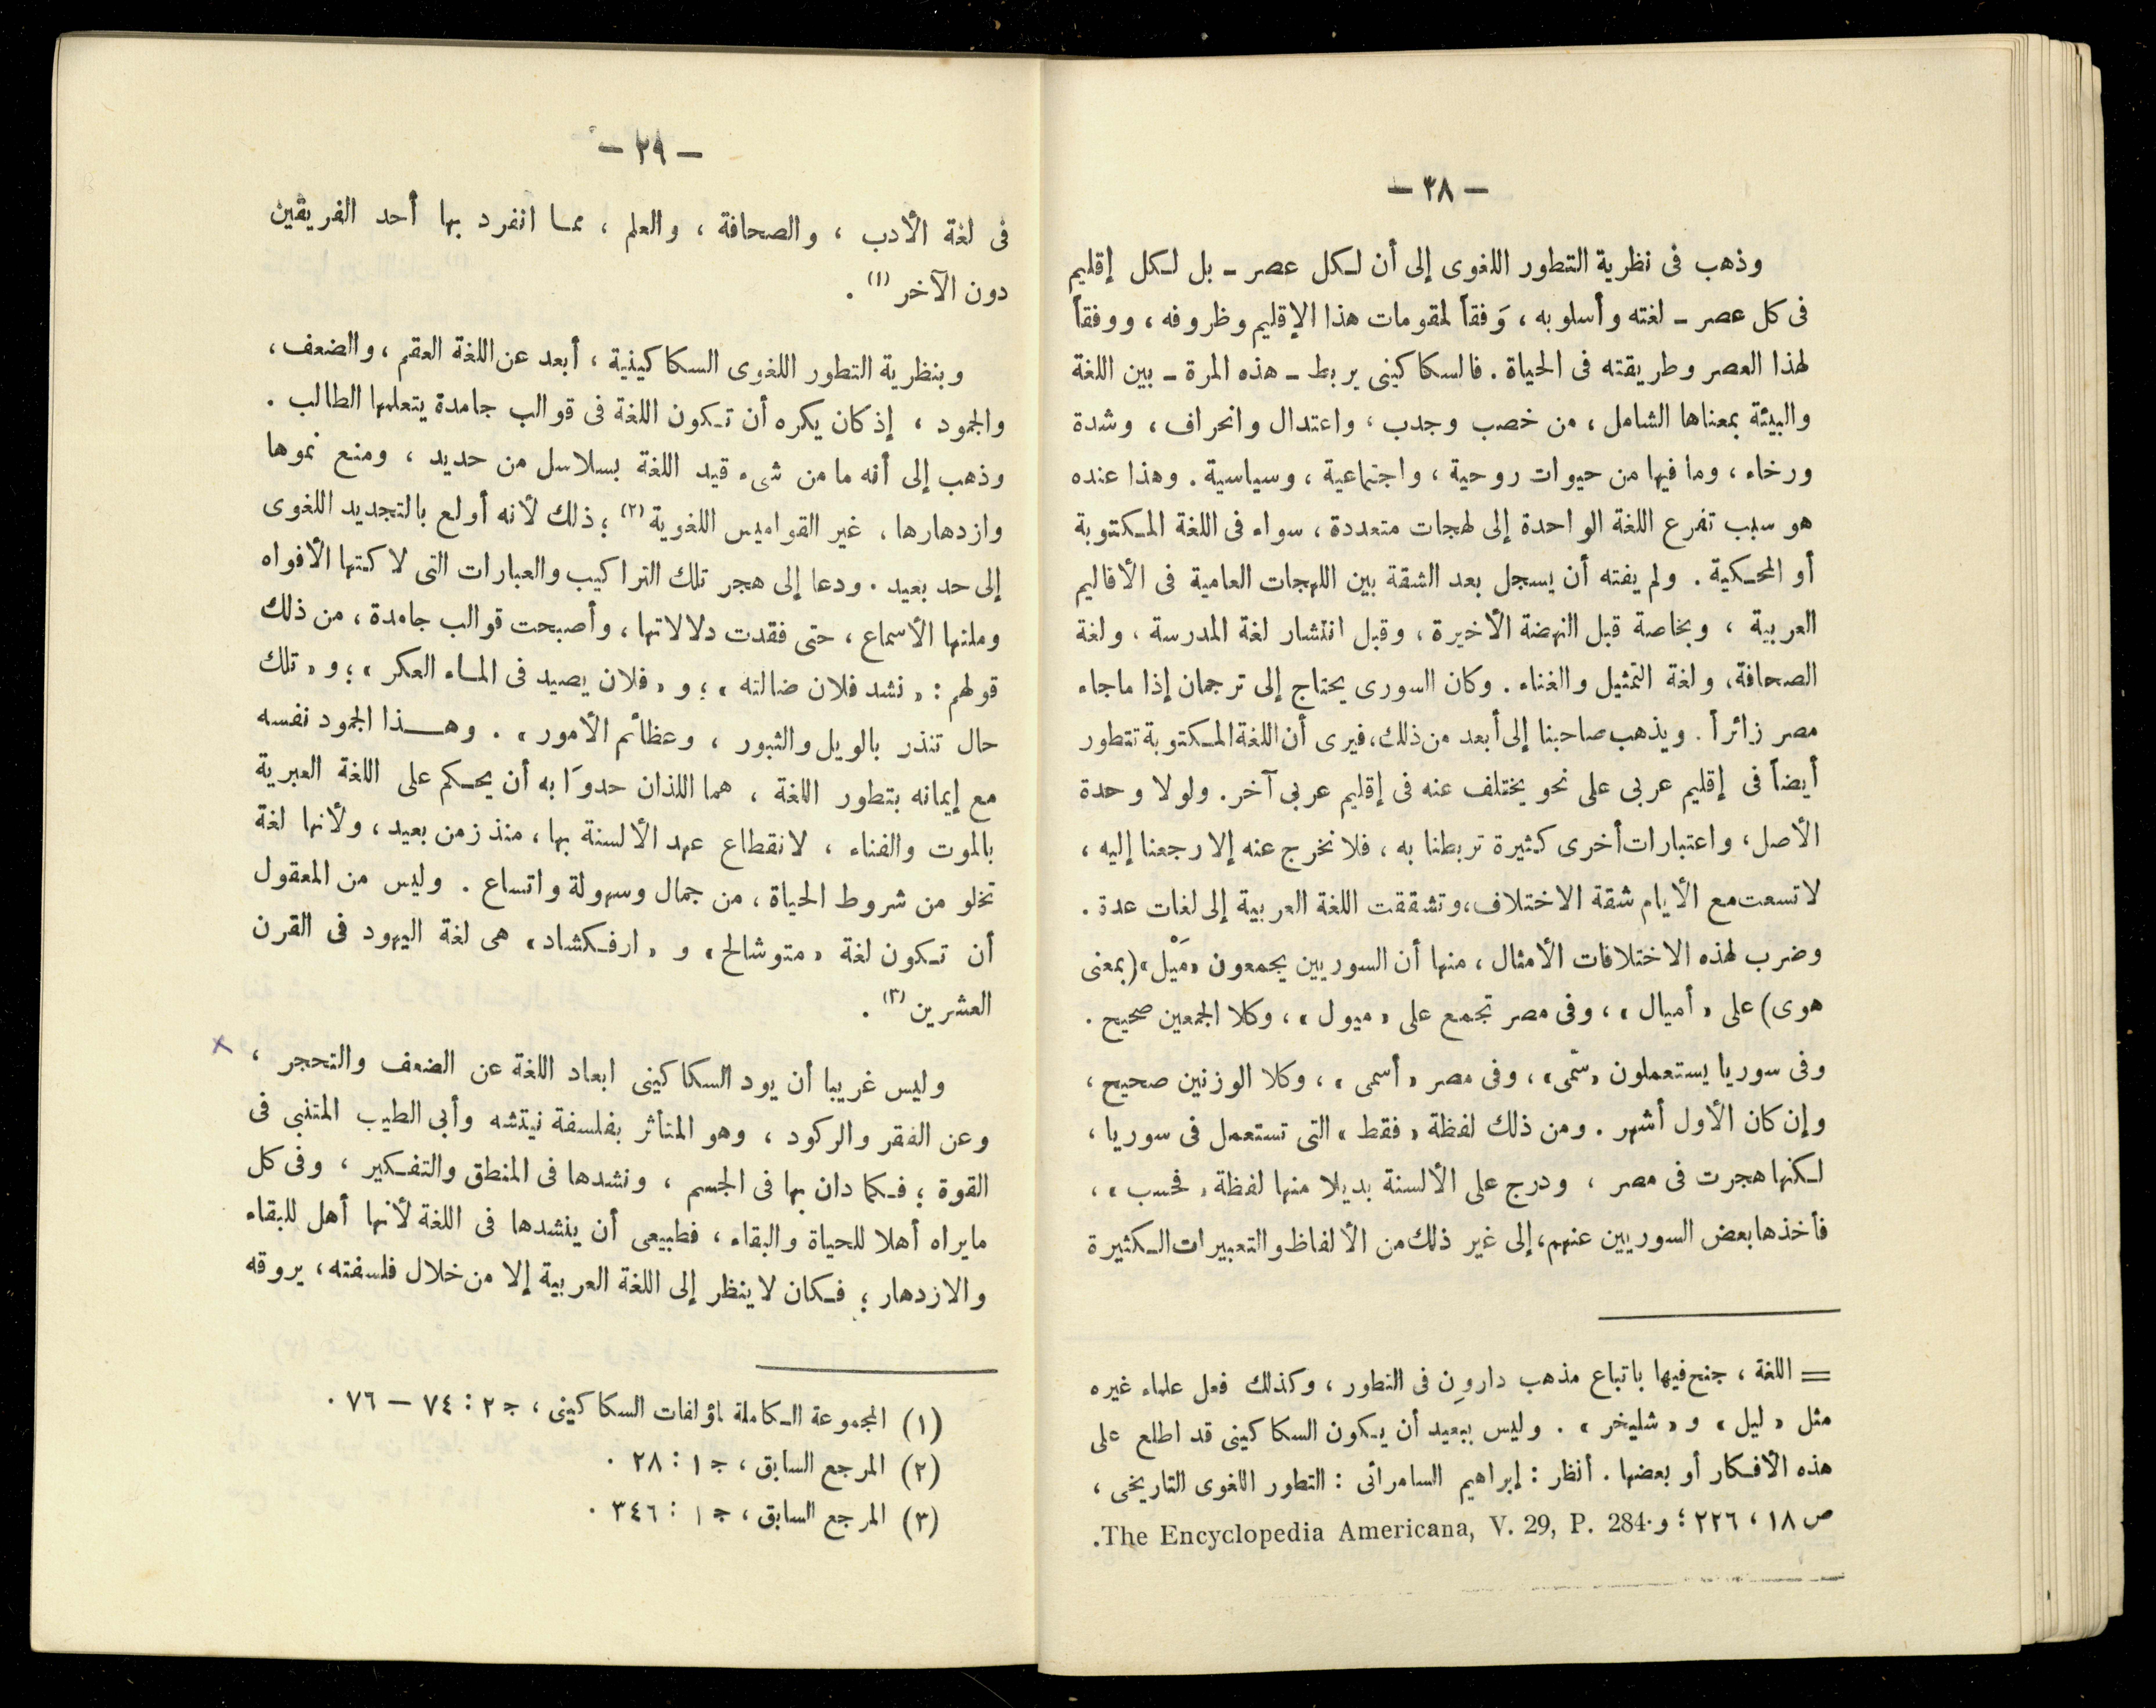 — ٣٨ —
وذهب فى نظرية التطور اللغوى إلى أن لكل عصر – بل لكل إقليم
فى كل عصر – لغته وأسلوبه ، وَفقاً لمقومات هذا الإقليم وظروفه ، ووفقاً
لهذا العصر وطريقته فى الحياة . فالسكاكينى يربط – هذه المرة – بين اللغة
والبيئة بمعناها الشامل ، من خصب وجدب ، واعتدال وانحراف ، وشدة
ورخاء ، وما فيها من حيوات روحية ، واجتماعية ، وسياسية . وهذا عنده
هو سبب تفرع اللغة الواحدة إلى لهجات متعددة ، سواء فى اللغة المكتوبة
أو المحكية . ولم يفته أن يسجل بعد الشقة بين اللهجات العامية فى الأقاليم
العربية ، وبخاصة قبل النهضة الأخيرة ، وقبل انتشار لغة المدرسة ، ولغة
الصحافة ، ولغة التمثيل والغناء . وكان السورى يحتاج إلى ترجمان إذا ما جاء
مصر زائراً . ويذهب صاحبنا إلى أبعد من ذلك ، فيرى أن اللغة المكتوبة تتطور
أيضاً فى إقليم عربى على نحو يختلف عنه فى إقليم عربى آخر . ولولا وحدة
الأصل ، واعتبارات أخرى كثيرة تربطنا به ، فلا نخرج عنه إلا رجعنا إليه ،
لاتسعت مع الأيام شقة الاختلاف ، وتشققت اللغة العربية إلى لغات عدة .
وضرب لهذه الاختلافات الأمثال ، منها أن السوريين يجمعون «مَيْل» (بمعنى
هوى) على « أميال » ، وفى مصر تجمع على « ميول » ، وكلا الجمعين صحيح .
وفى سوريا يستعملون «سمّى» ، وفى مصر « أسمى » ، وكلا الوزنين صحيح ،
وإن كان الأول أشهر . ومن ذلك لفظة « فقط » التى تستعمل فى سوريا ،
لكنها هجرت فى مصر ، ودرج على الألسنة بديلا منها لفظة « فحسب » ،
فأخذها بعض السوريين عنهم ، إلى غير ذلك من الألفاظ والتعبيرات الكثيرة
= اللغة ، جنح فيها باتباع مذهب داروين فى التطور ، وكذلك فعل علماء غيره
مثل « ليل » و « شليخر » . وليس ببعيد أن يكون السكاكينى قد اطلع على
هذه الأفكار أو بعضها . أنظر : إبراهيم السامرائى : التطور اللغوى التاريخى ،
ص ١٨ ، ٢٢٦ ؛ و The Encyclopedia Americana, V. 29, P. 284.
— ٣٩ —
فى لغة الأدب ، والصحافة ، والعلم ، مما انفرد بها أحد الفريقين
دون الآخر (١) .
وبنظرية التطور اللغوى السكاكينية ، أبعد عن اللغة العقم ، والضعف ،
والجمود ، إذ كان يكره أن تكون اللغة فى قوالب جامدة يتعلمها الطالب .
وذهب إلى أنه ما من شىء قيد اللغة بسلاسل من حديد ، ومنع نموها
وازدهارها ، غير القواميس اللغوية (٢) ؛ ذلك لأنه أولع بالتجديد اللغوى
إلى حد بعيد . ودعا إلى هجر تلك التراكيب والعبارات التى لاكتها الأفواه
وملتها الأسماع ، حتى فقدت دلالاتها ، وأصبحت قوالب جامدة ، من ذلك
قولهم : « نشد فلان ضالته » ؛ و « فلان يصيد فى الماء العكر » ؛ و « تلك
حال تنذر بالويل والثبور ، وعظائم الأمور » . وهذا الجمود نفسه
مع إيمانه بتطور اللغة ، هما اللذان حدوَا به أن يحكم على اللغة العبرية
بالموت والفناء ، لانقطاع عهد الألسنة بها ، منذ زمن بعيد ، ولأنها لغة
تخلو من شروط الحياة ، من جمال وسهولة واتساع . وليس من المعقول
أن تكون لغة « متوشالح » و « ارفكشاد » هى لغة اليهود فى القرن
العشرين (٣) .
وليس غريبا أن يود السكاكينى ابعاد اللغة عن الضعف والتحجر ،
وعن الفقر والركود ، وهو المتأثر بفلسفة نيتشه وأبى الطيب المتنبى فى
القوة ؛ فكما دان بها فى الجسم ، ونشدها فى المنطق والتفكير ، وفى كل
ما يراه أهلا للحياة والبقاء ، فطبيعى أن ينشدها فى اللغة لأنها أهل للبقاء
والازدهار ؛ فكان لا ينظر إلى اللغة العربية إلا من خلال فلسفته ، يروقه
(١) المجموعة الكاملة لمؤلفات السكاكينى ، ج ٢ : ٧٤ — ٧٦ .
(٢) المرجع السابق ، ج ١ : ٢٨ .
(٣) المرجع السابق ، ج ١ : ٣٤٦ .